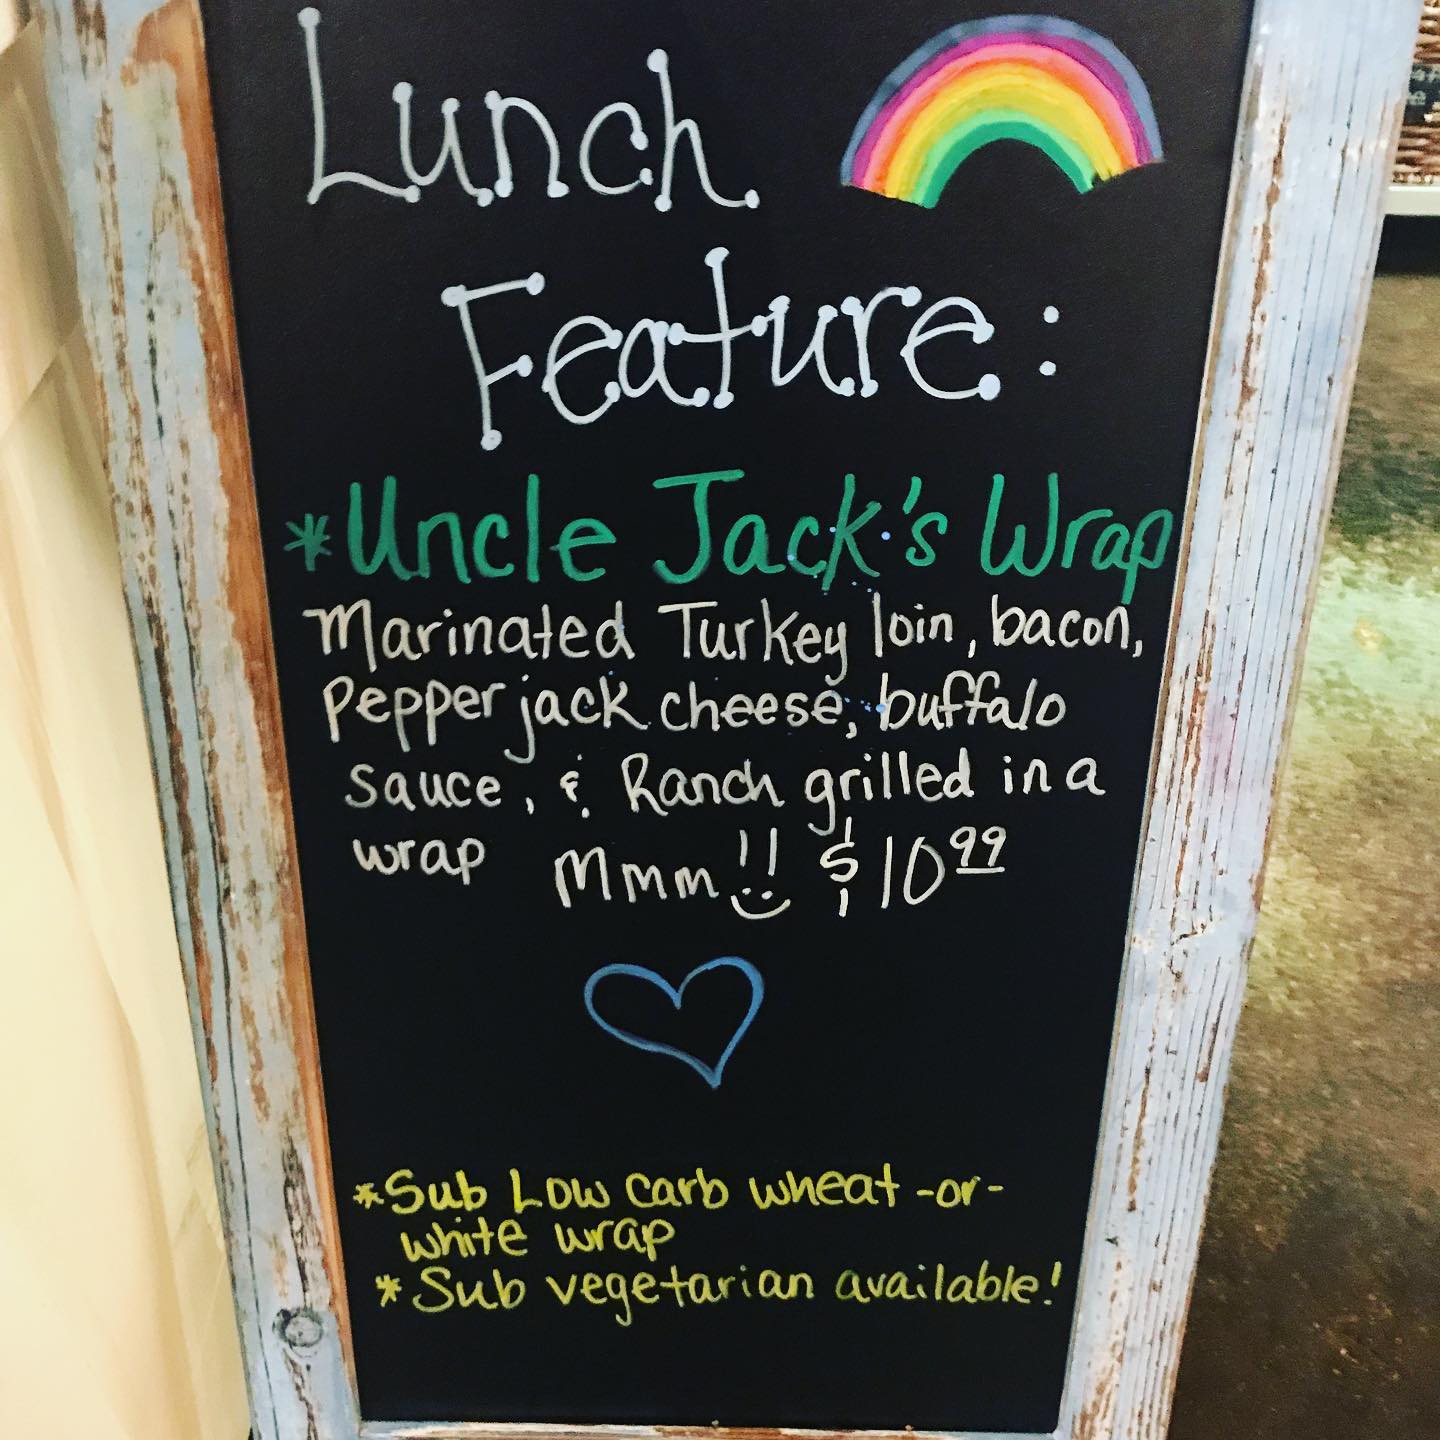 Lunch
Feature:
*Uncle Jack's Wrap
Marinated Turkey loin, bacon,
Pepper jack cheese, buffalo
sauce, & Ranch grilled in a
wrap Mmm!! $10.99
*Sub Low carb wheat -or-
white wrap
*Sub vegetarian available!